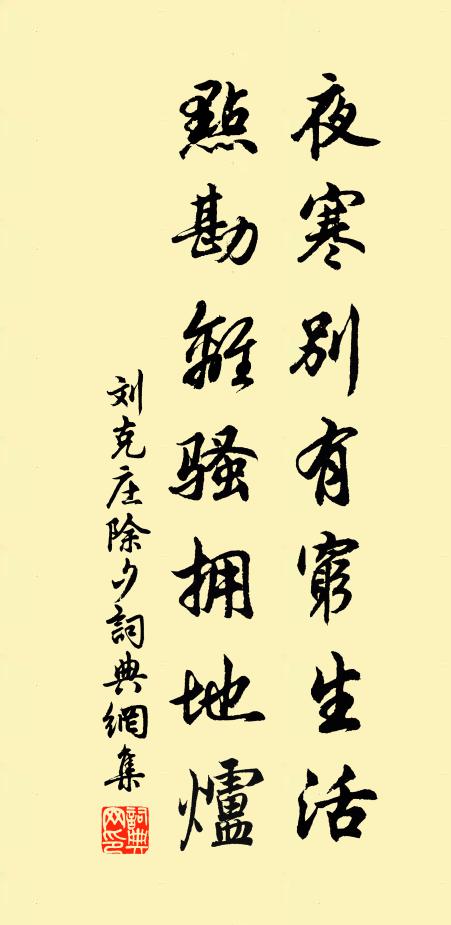 夜寒别有窮生活
點勘離骚拥地爐
刘克庄除夕詞典網集
詞典網印